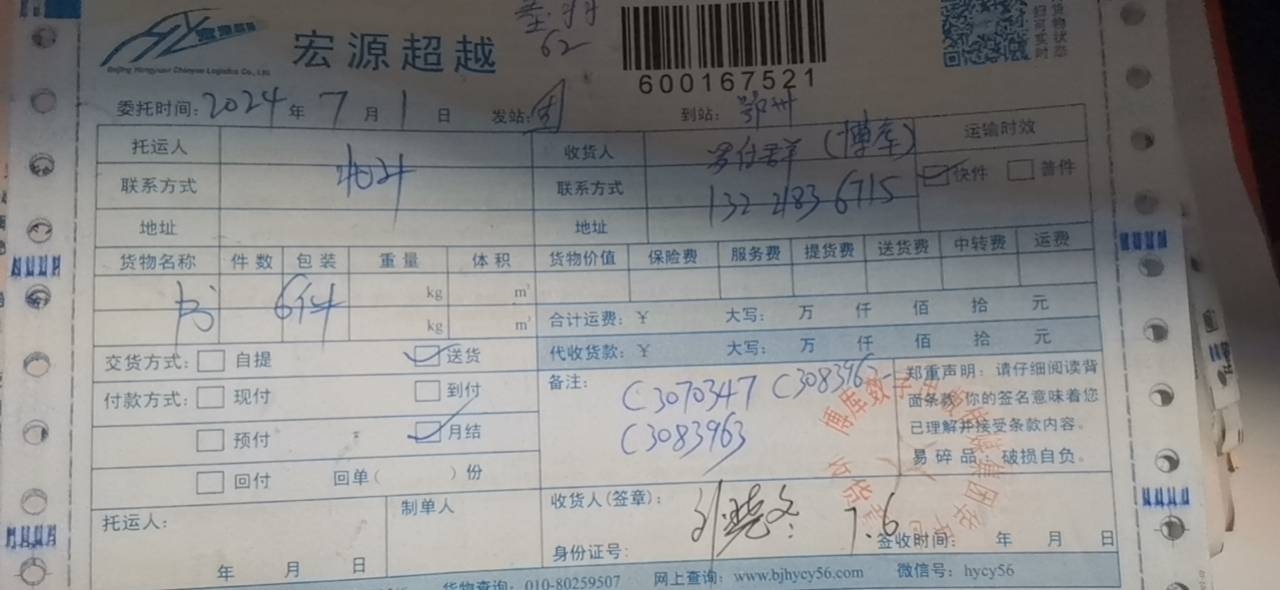 62
宏源超越
Beijing Hongyuan Chaoyue Logistics Co., Ltd
600167521
委托时间: 2024 年 7 月 1 日 发站: 到站: 鄂州
托运人 收货人 (博库) 运输时效
联系方式 联系方式 132 2183 6715 快件 普件
地址 地址
货物名称 件数 包装 重量 体积 货物价值 保险费 服务费 提货费 送货费 中转费 运费
书 6件 kg m³
kg m³ 合计运费: ¥ 大写: 万 仟 佰 拾 元
交货方式: 自提 送货 代收货款: ¥ 大写: 万 仟 佰 拾 元
付款方式: 现付 到付 备注: C3070347 C3083962
预付 月结 C3083963
回付 回单( )份
郑重声明: 请仔细阅读背
面条款 你的签名意味着您
已理解并接受条款内容。
易碎品: 破损自负。
托运人: 制单人 收货人(签章): 7.6
年 月 日 身份证号: 签收时间: 年 月 日
货物查询: 010-80259507 网上查询: www.bjhycy56.com 微信号: hycy56